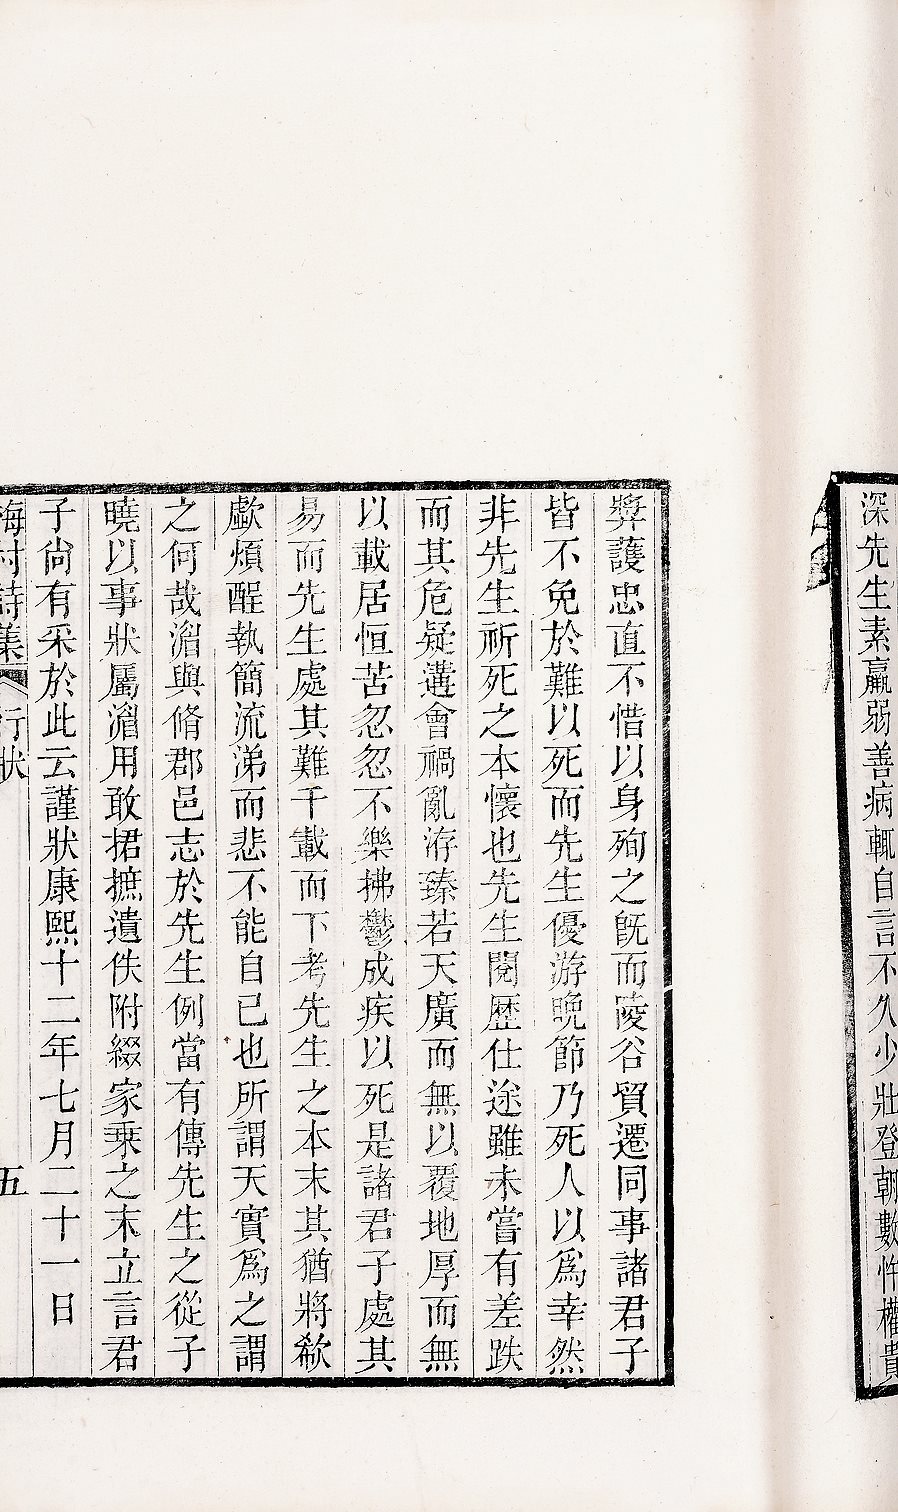 深先生素羸弱善病輒自言不久少壯登朝數忤權貴
獎護忠直不惜以身殉之旣而陵谷貿遷同事諸君子
皆不免於難以死而先生優游晚節乃死人以爲幸然
非先生祈死之本懷也先生閱歷仕途雖未嘗有差跌
而其危疑遘會禍亂洊臻若天廣而無以覆地厚而無
以載居恒苦忽忽不樂拂鬱成疾以死是諸君子處其
易而先生處其難千載而下考先生之本末其猶將欷
歔煩酲執簡流涕而悲不能自已也所謂天實爲之謂
之何哉湄與脩郡邑志於先生例當有傳先生之從子
曉以事狀屬湄用敢捃摭遺佚附綴家乘之末立言君
子尙有采於此云謹狀康熙十二年七月二十一日
梅村詩集 行狀 五